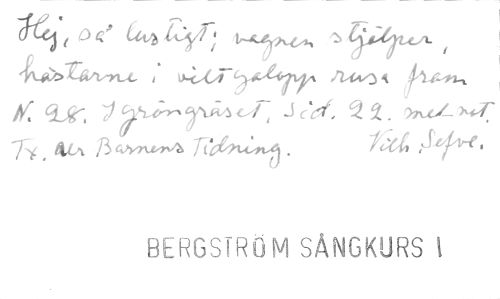 Hej, så lustigt; vagnen stjälper,
hästarne i vilt galopp rusa fram
N. 28. I gröngräset. Sid. 22. med not.
Tx. ur Barnens Tidning. Vilh. Sefve.
BERGSTRÖM SÅNGKURS I